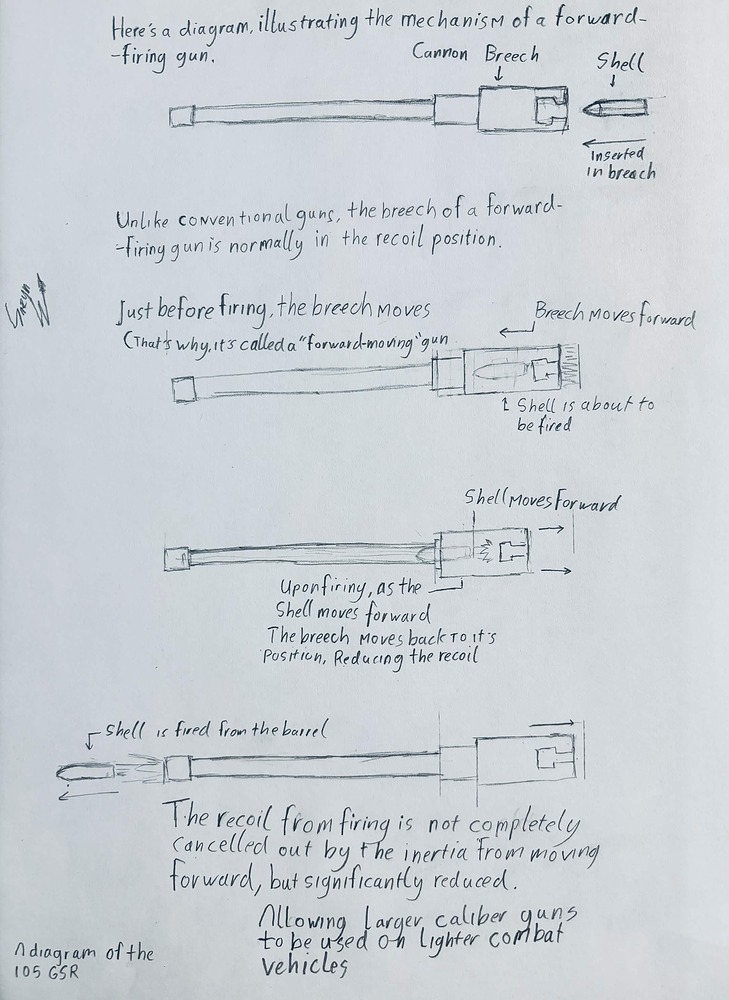 Here's a diagram, illustrating the mechanism of a forward-
-firing gun.
Cannon Breech
Shell
Inserted
in breach
Unlike conventional guns, the breech of a forward-
-firing gun is normally in the recoil position.
Just before firing, the breech moves
(That's why, it's called a "forward-moving" gun
Breech moves forward
Shell is about to
be fired
Shell Moves Forward
Upon firing, as the
Shell moves forward
The breech moves back to it's
Position, Reducing the recoil
Shell is fired from the barrel
The recoil from firing is not completely
cancelled out by the inertia from moving
forward, but significantly reduced.
Allowing larger caliber guns
to be used on lighter combat
vehicles
A diagram of the
105 GSR